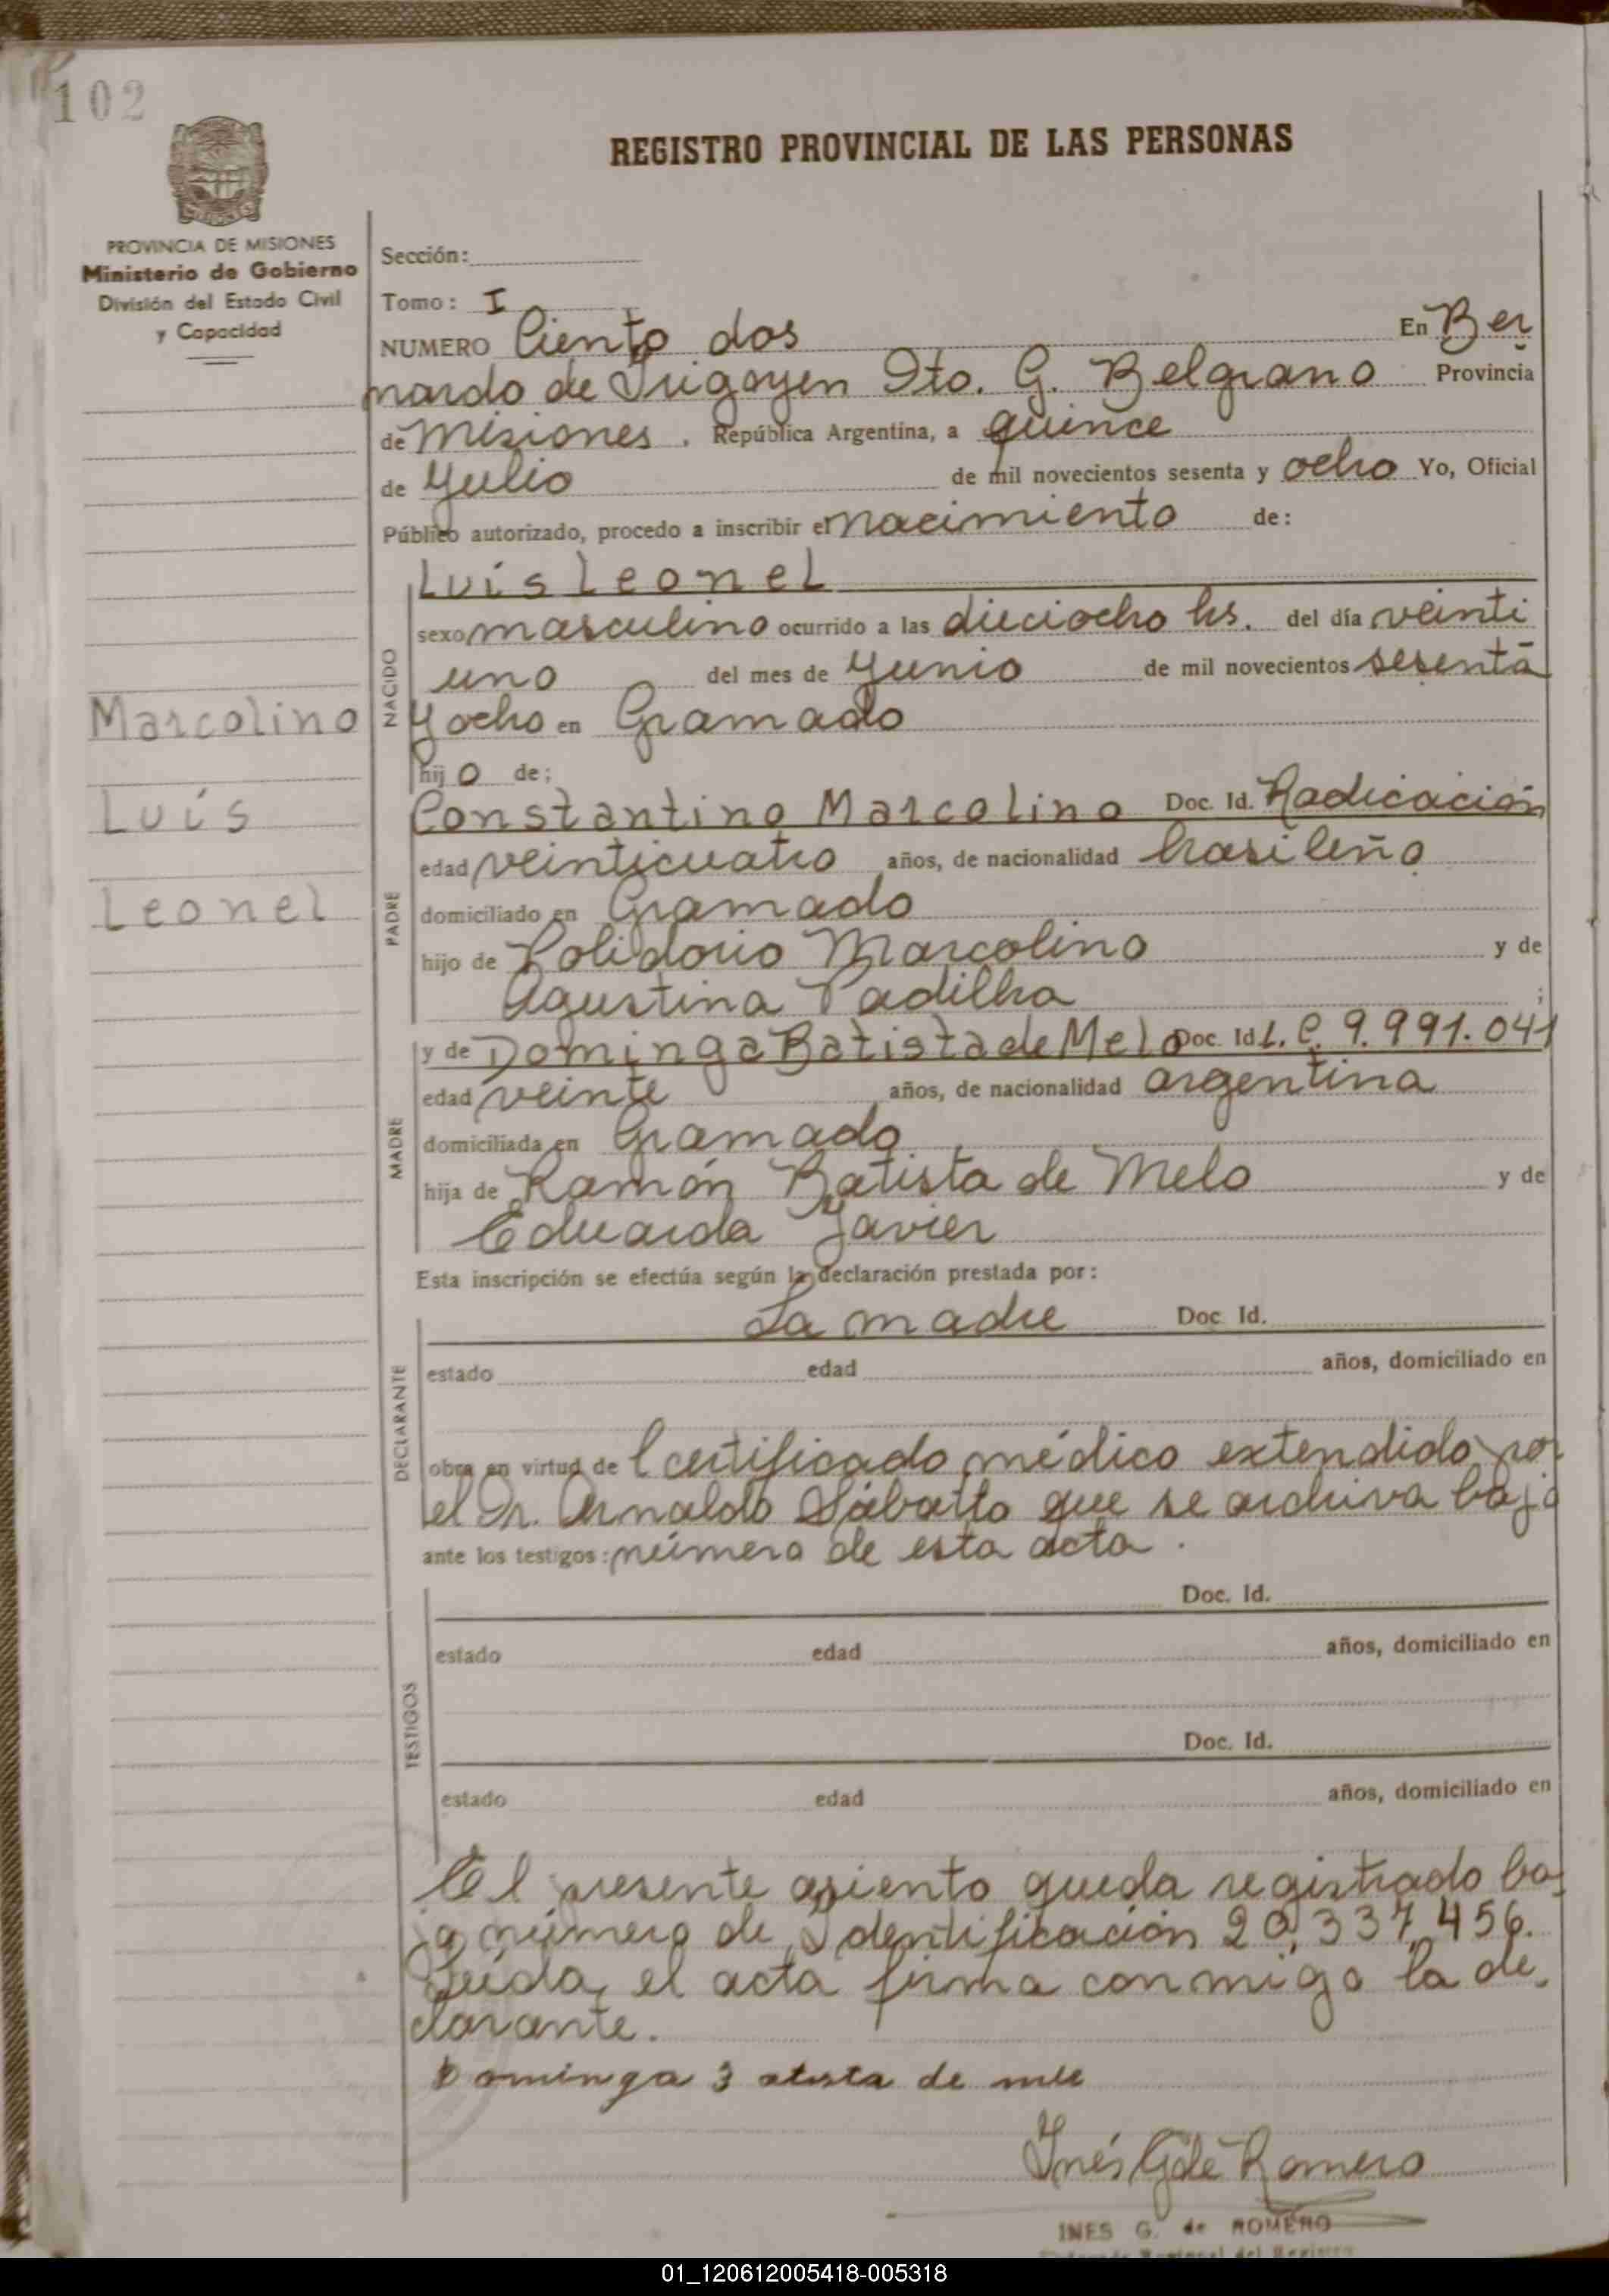 102
REGISTRO PROVINCIAL DE LAS PERSONAS
PROVINCIA DE MISIONES
Ministerio de Gobierno
División del Estado Civil
y Capacidad
Marcolino
Luís
Leonel
Sección:
Tomo: I
NUMERO Ciento dos En Ber
nardo de Irigoyen Dto. G. Belgrano Provincia
de Misiones. República Argentina, a quince
de Yulio de mil novecientos sesenta y ocho Yo, Oficial
Público autorizado, procedo a inscribir el nacimiento de:
NACIDO
Luís Leonel
sexo masculino ocurrido a las dieciocho hs. del día veinti
uno del mes de Yunio de mil novecientos sesenta
y ocho en Gramado
hijo de;
PADRE
Constantino Marcolino Doc. Id. Radicación
edad veinticuatro años, de nacionalidad brasileño
domiciliado en Gramado
hijo de Polidorio Marcolino y de
Agustina Padilha ;
MADRE
y de Dominga Batista de Melo Doc. Id L. C. 9.991.041
edad veinte años, de nacionalidad argentina
domiciliada en Gramado
hija de Ramón Batista de Melo y de
Eduarda Javier
Esta inscripción se efectúa según la declaración prestada por:
DECLARANTE
La madre Doc. Id.
estado edad años, domiciliado en
obra en virtud de l certificado médico extendido por
el Dr. Arnaldo Sábatto que se archiva bajo
ante los testigos: número de esta acta.
TESTIGOS
Doc. Id.
estado edad años, domiciliado en
Doc. Id.
estado edad años, domiciliado en
El presente asiento queda registrado ba-
jo número de Identificación 20,337,456.
Leída el acta firma conmigo la de-
clarante.
Dominga Batista de mele
Inés G de Romero
INES G. de ROMERO
01_120612005418-005318